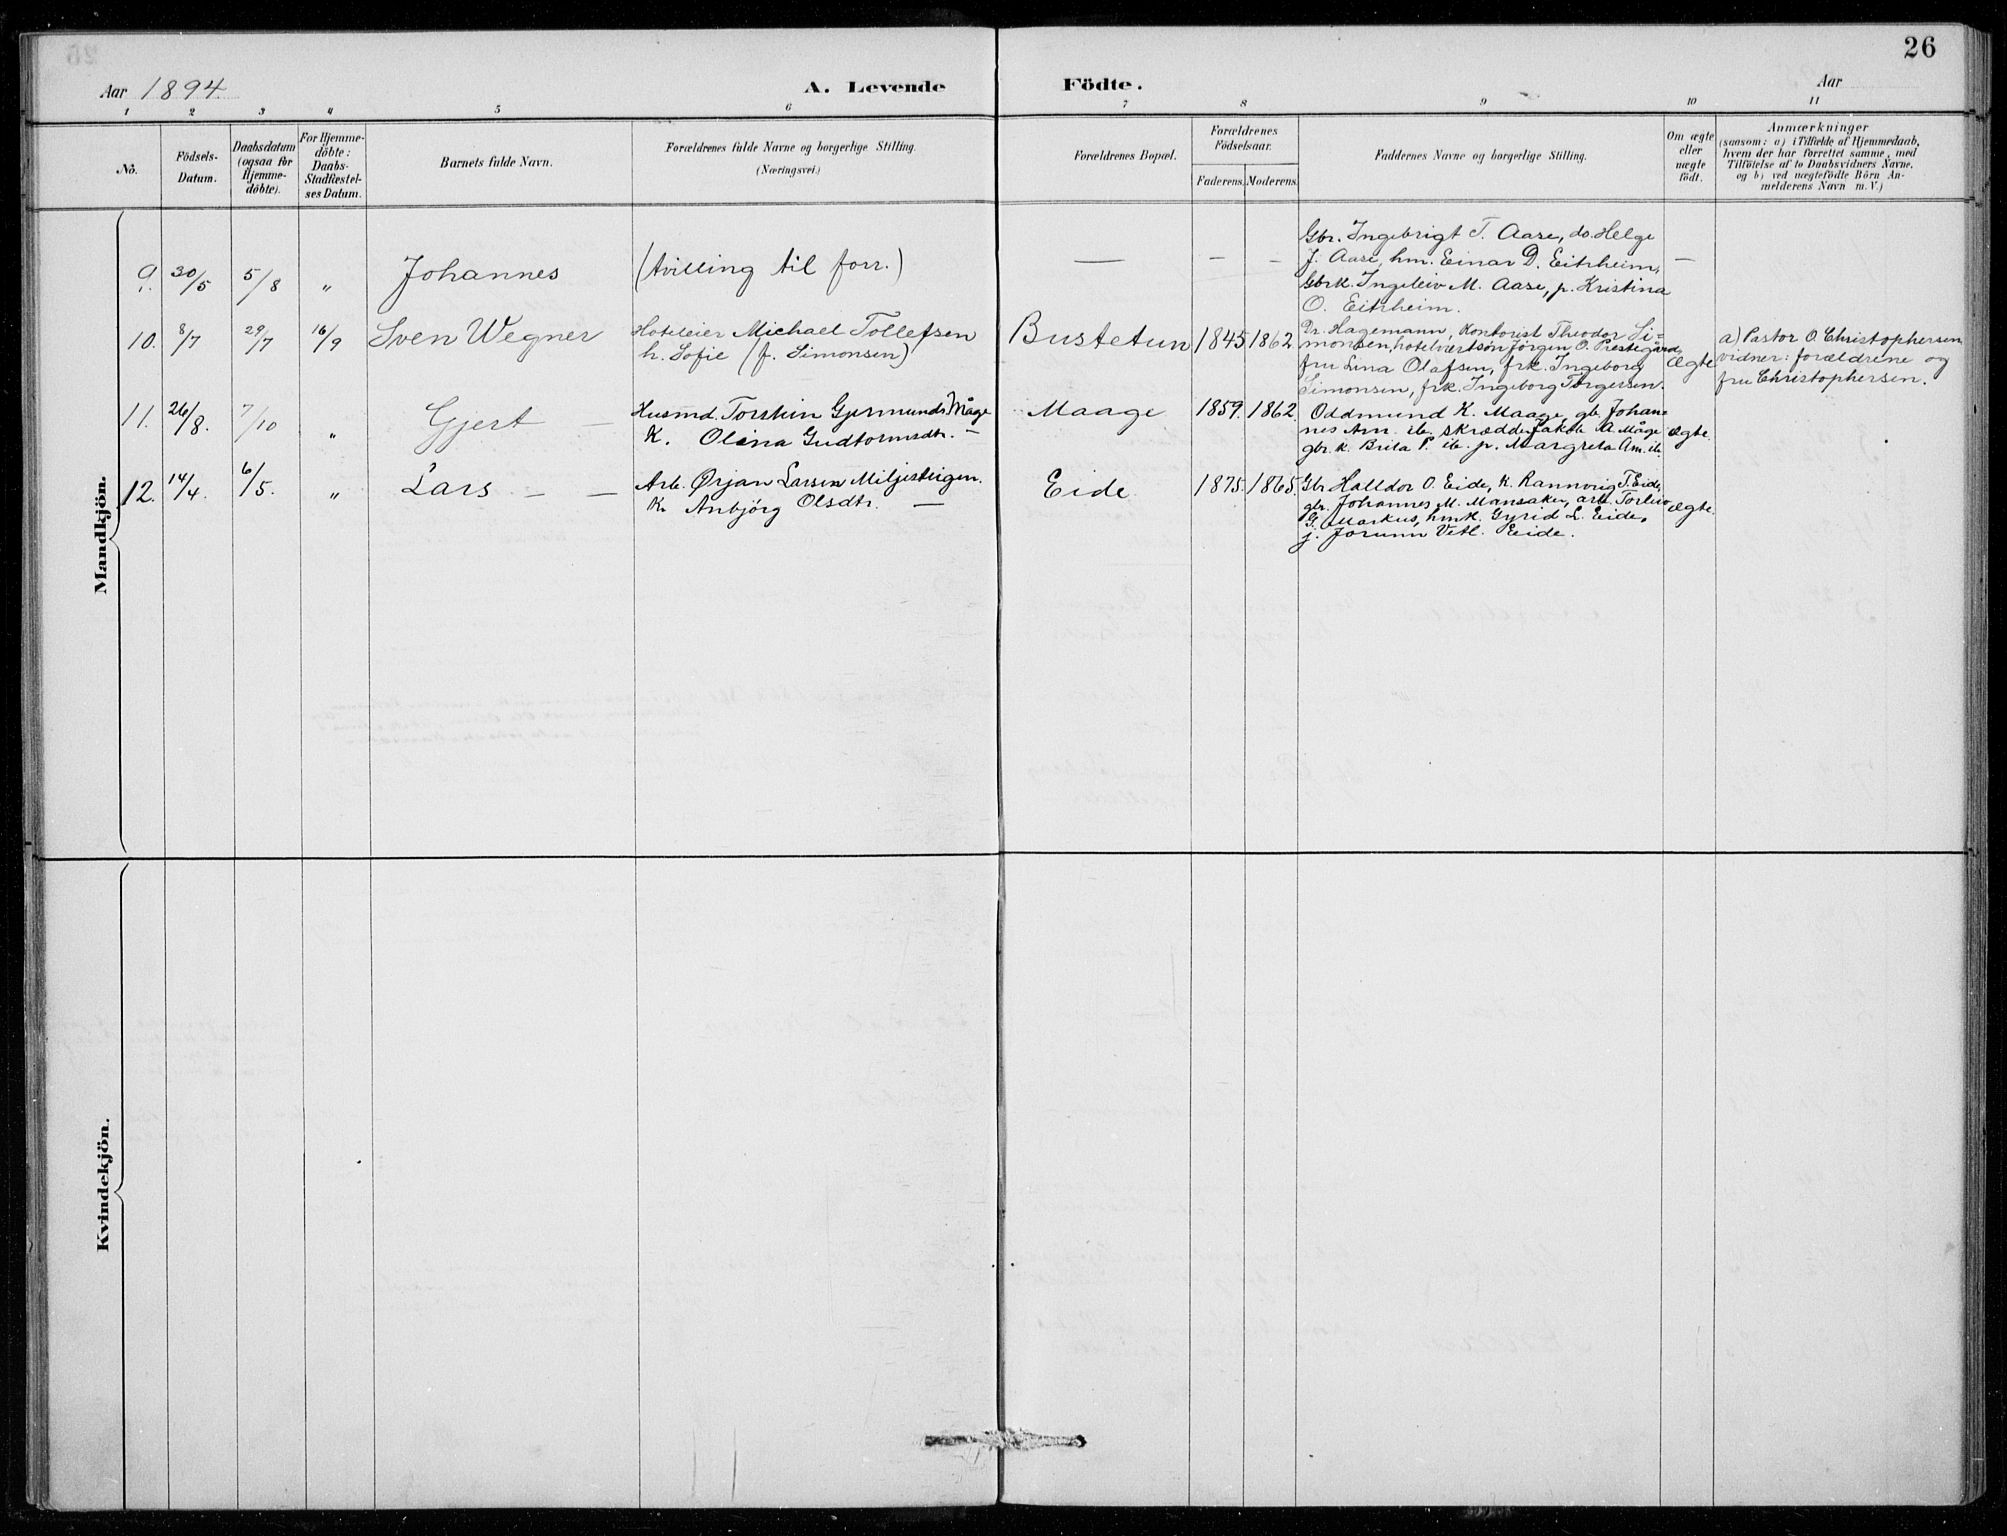 26
Aar 1894. A. Levende Födte. Aar
1 2 3 4 5 6 7 8 9 10 11
No. Födsels-Datum. Daabsdatum (ogsaa for Hjemme-döbte). For Hjemme-döbte: Daabs-Stadfæstel-ses Datum. Barnets fulde Navn. Forældrenes fulde Navne og borgerlige Stilling. (Næringsvei.) Forældrenes Bopæl. Forældrenes Födselsaar. Faderens. Moderens. Faddernes Navne og borgerlige Stilling. Om ægte eller uægte födt. Anmærkninger (saasom: a) i Tilfælde af Hjemmedaab, hvem der har forrettet samme, med Tilföielse af to Daabsvidners Navne. og b) ved uægtefödte Börn An-melderens Navn m. V.)
Mandkjön.
9. 30/5 5/8 " Johannes (tvilling til forr.) — – – Gbr. Ingebrigt T. Aase, do. Helge
J. Aase, hm. Einar D. Eitrheim, —
Gbrk. Ingeleiv M. Aase, p. Kristina
O. Eitrheim.
10. 8/7 29/7 16/9 Sven Wegner Hoteleier Michael Tollefsen
h. Sofie (f. Simonsen) Bustetun 1845 1862 Dr. Hagemann, Kontorist Theodor Si=
monsen, hotelværtsøn Jørgen O. Prestegård,
fru Lina Olafsen, frk. Ingeborg
Simonsen, frk. Ingeborg Torgersen. Ægte a) Pastor O. Christophersen
vidner: forældrene og
fru Christophersen.
11. 26/8. 7/10 " Gjert — Husmd. Torstein Gjermunds. Måge
K. Olina Gudtormsdtr. – Maage 1859. 1862 Oddmund K. Maage, gb. Johan=
nes Am. ib. skrædder Jakob A. Måge
gbr. k. Brita P. ib. p. Margreta Am. ib. Ægte.
12. 14/4. 6/5. " Lars – – Arb. Ørjan Larsen Miljesteigen.
K. Anbjörg Olsdtr. — Eide 1875. 1865. Gbr Halldor O. Eide, k. Rannveig T. Eide,
gbr. Johannes M. Mansaker, arb. Torleiv
G. Markus, hmk. Gyrid L. Eide,
j. Jorunn Vetl. Eide. Ægte.
Kvindekjön.